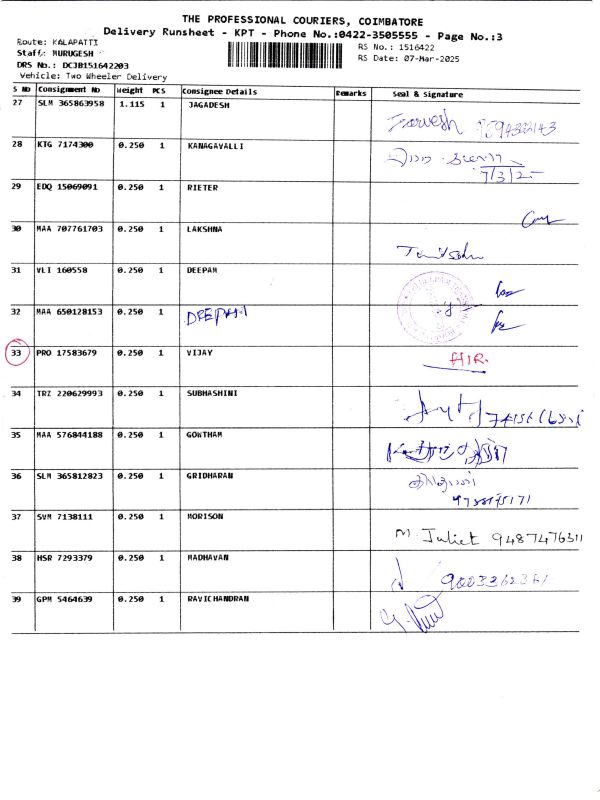 THE PROFESSIONAL COURIERS, COIMBATORE
Delivery Runsheet - KPT - Phone No.:0422-3505555 - Page No.:3
Route: KALAPATTI
RS No.: 1516422
Staff: MURUGESH
RS Date: 07-Mar-2025
DRS No.: DCJB151642203
Vehicle: Two Wheeler Delivery
S No Consignment No Weight PCS Consignee Details Remarks Seal & Signature
27 SLM 365863958 1.115 1 JAGADESH
28 KTG 7174300 0.250 1 KANAGAVALLI
7/3/25
29 EDQ 15069091 0.250 1 RIETER
30 MAA 707761703 0.250 1 LAKSHNA
31 VLI 160558 0.250 1 DEEPAM
32 MAA 650128153 0.250 1
33 PRO 17583679 0.250 1 VIJAY HIR.
34 TRZ 220629993 0.250 1 SUBHASHINI
35 MAA 576844188 0.250 1 GOWTHAM
36 SLM 365812823 0.250 1 GRIDHARAN
37 SVM 7138111 0.250 1 MORISON M. Juliet
38 HSR 7293379 0.250 1 MADHAVAN
39 GPM 5464639 0.250 1 RAVICHANDRAN